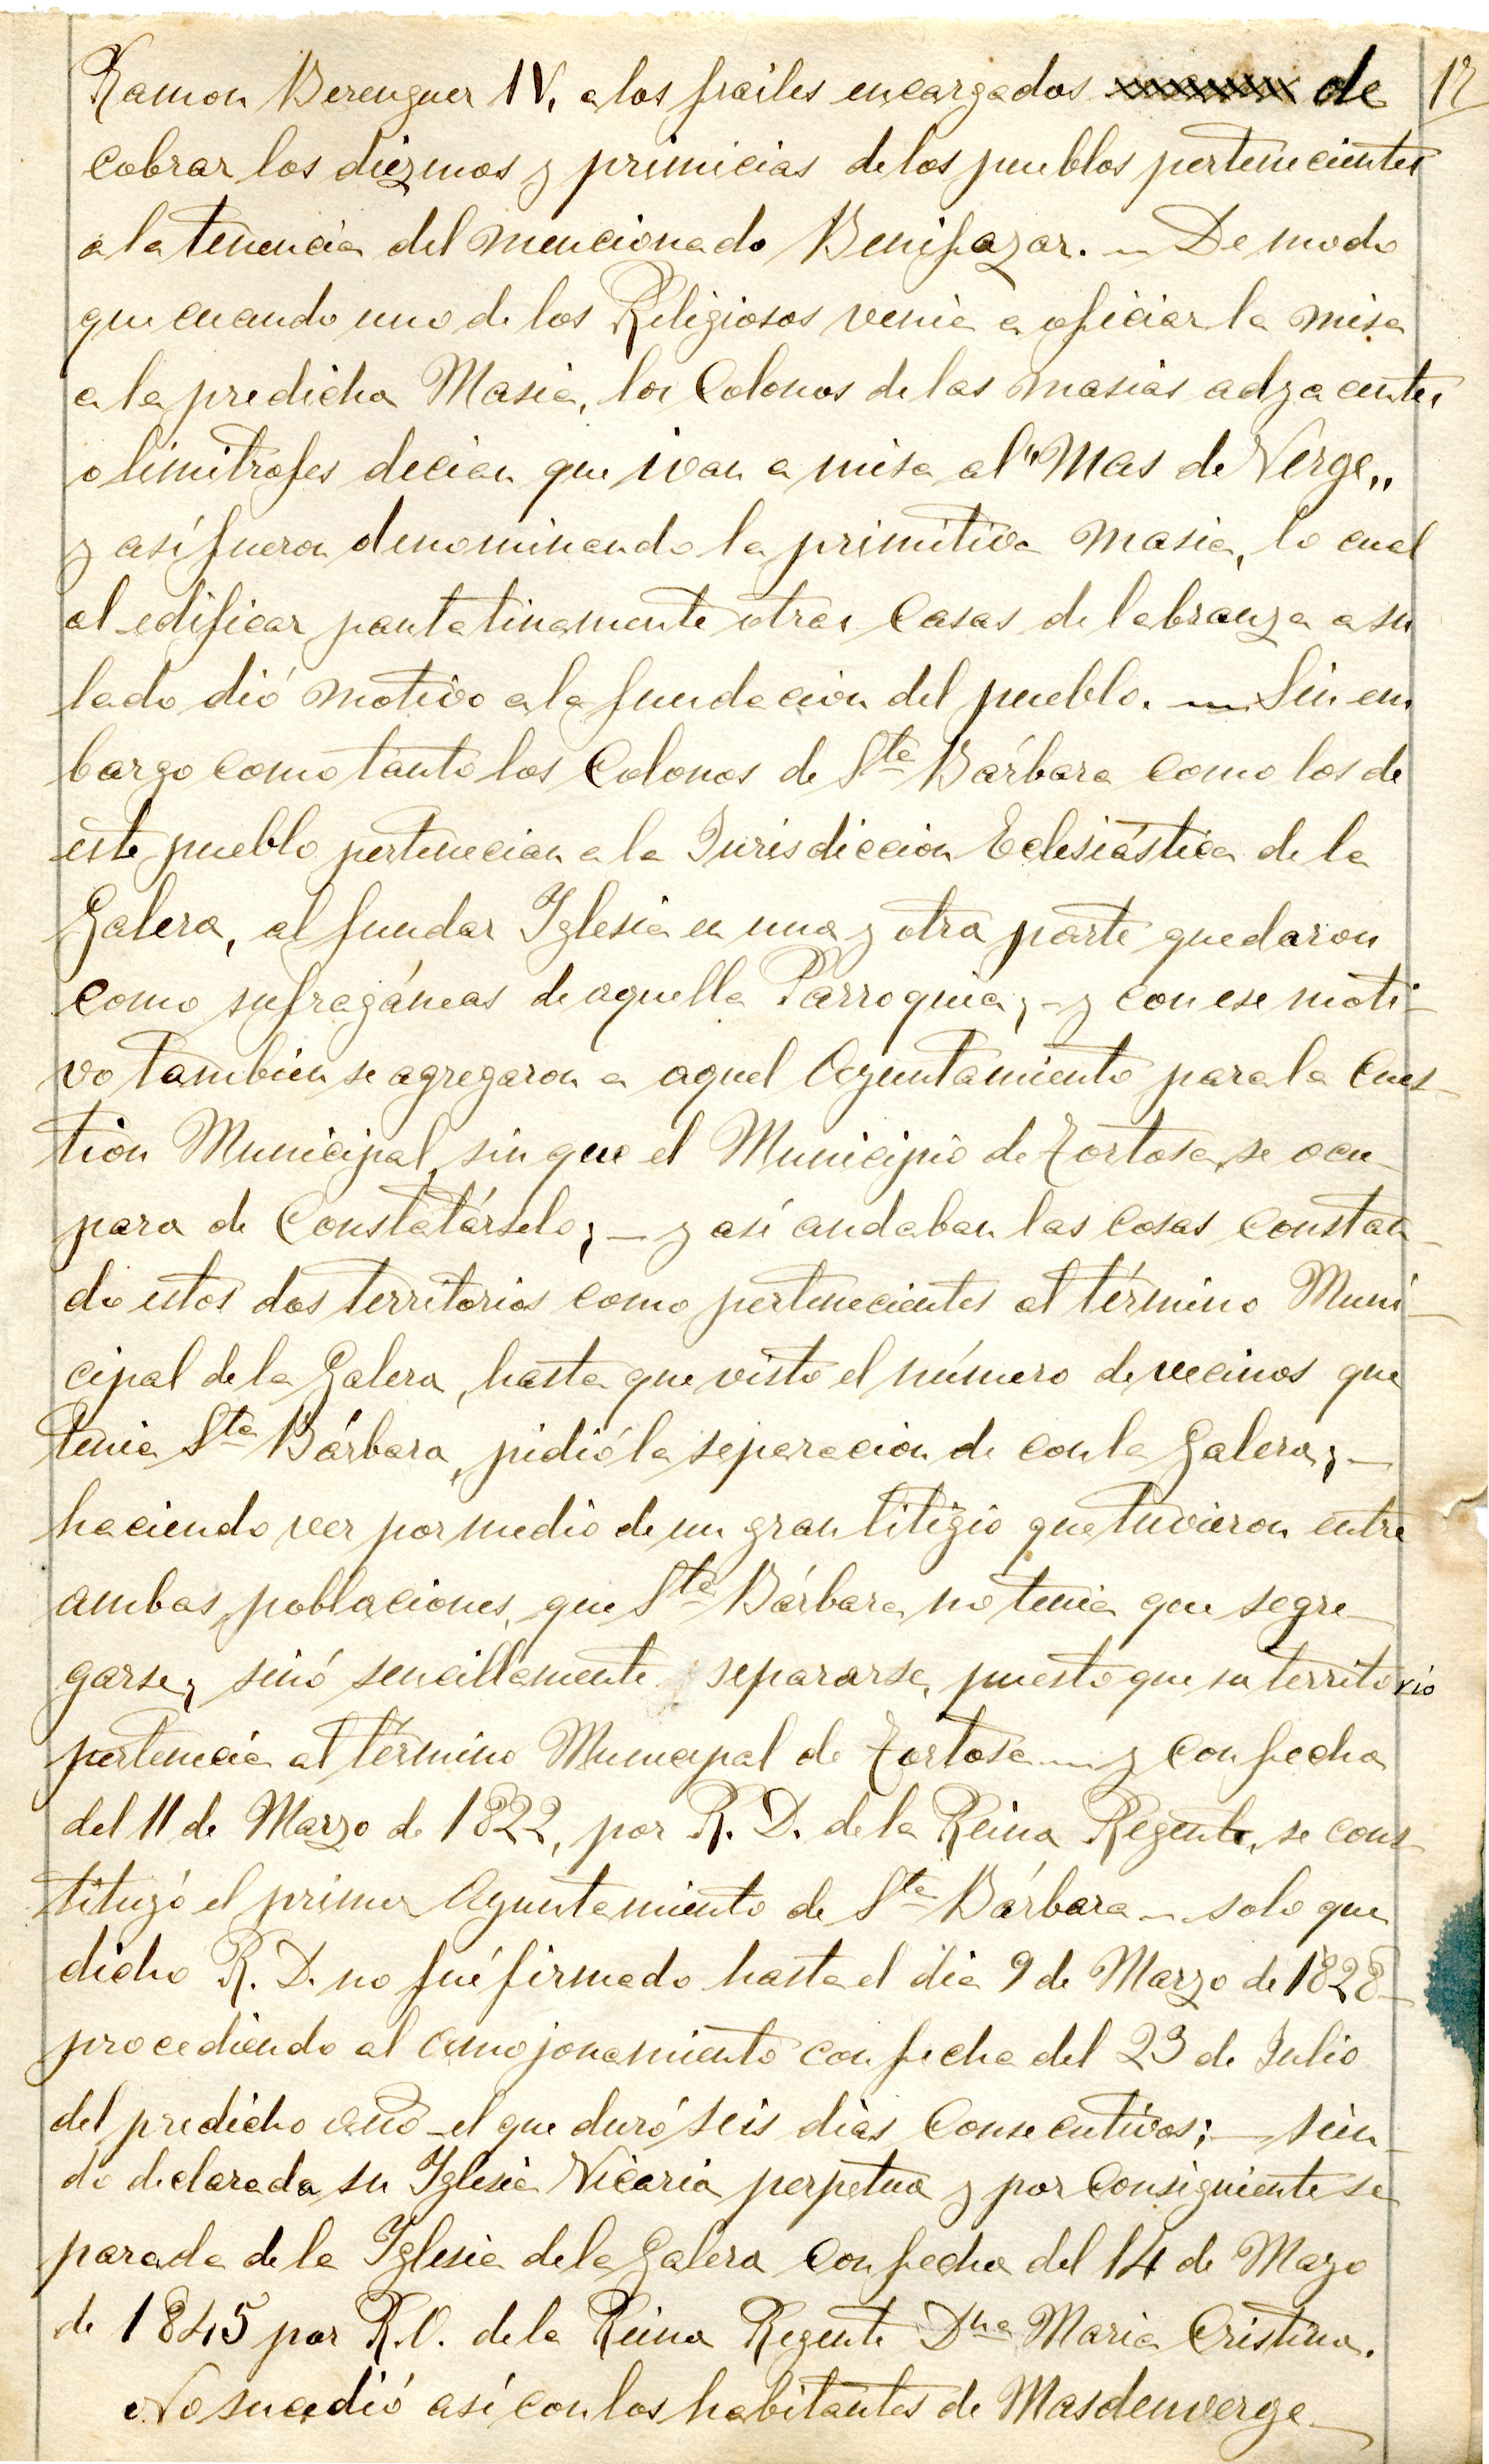 Ramon Berenguer IV, a los frailes encargados de
12
cobrar los diezmos y primicias de los pueblos pertenecientes
a la tenencia del mencionado Benifazar. — De modo
que cuando uno de los Religiosos venia a oficiar la misa
a la predicha Masia, los Colonos de las masias adyacentes
o limitrofes decian que ivan a misa al "Mas de Verge„
y así fueron denominando la primitiva masia, lo cual
al edificar pautatinamente otras Casas de labranza a su
lado dió motivo a la fundacion del pueblo. — Sin em
bargo como tanto los Colonos de Sta Bárbara como los de
este pueblo pertenecian a la Jurisdiccion Eclesiástica de la
Galera, al fundar Iglesia en una y otra parte quedaron
como sufragáneas de aquella Parroquia; - y con ese moti-
vo tambien se agregaron a aquel Ayuntamiento para la Cues-
tion Municipal, sin que el Municipio de Tortosa, se ocu-
para de Constatárselo; — y asi andaban las cosas constan-
do estos dos territorios como pertenecientes al término Muni-
cipal de la Galera, hasta que visto el número de vecinos que
tenia Sta Bárbara, pidió la separacion de con la Galera; —
haciendo ver por medio de un gran litigio que tuvieron entre
ambas poblaciones, que Sta Bárbara no tenia que segre-
garse, sinó sencillamente separarse, puesto que su territorio
pertenecia al término Municipal de Tortosa — y con fecha
del 11 de Marzo de 1822, por R. D. de la Reina Regente, se cons-
tituyó el primer Ayuntamiento de Sta Bárbara — solo que
dicho R. D. no fué firmado hasta el dia 9 de Marzo de 1828 -
procediendo al amojonamiento con fecha del 23 de Julio
del predicho año - el que duró seis dias Consecutivos; — sien-
do declarada su Iglesia Vicaria perpetua y por consiguiente se
parada de la Iglesia de la Galera con fecha del 14 de Mayo
de 1845 por R. O. de la Reina Regente Dña Maria Cristina.
No sucedió así con los habitantes de Masdenverge —